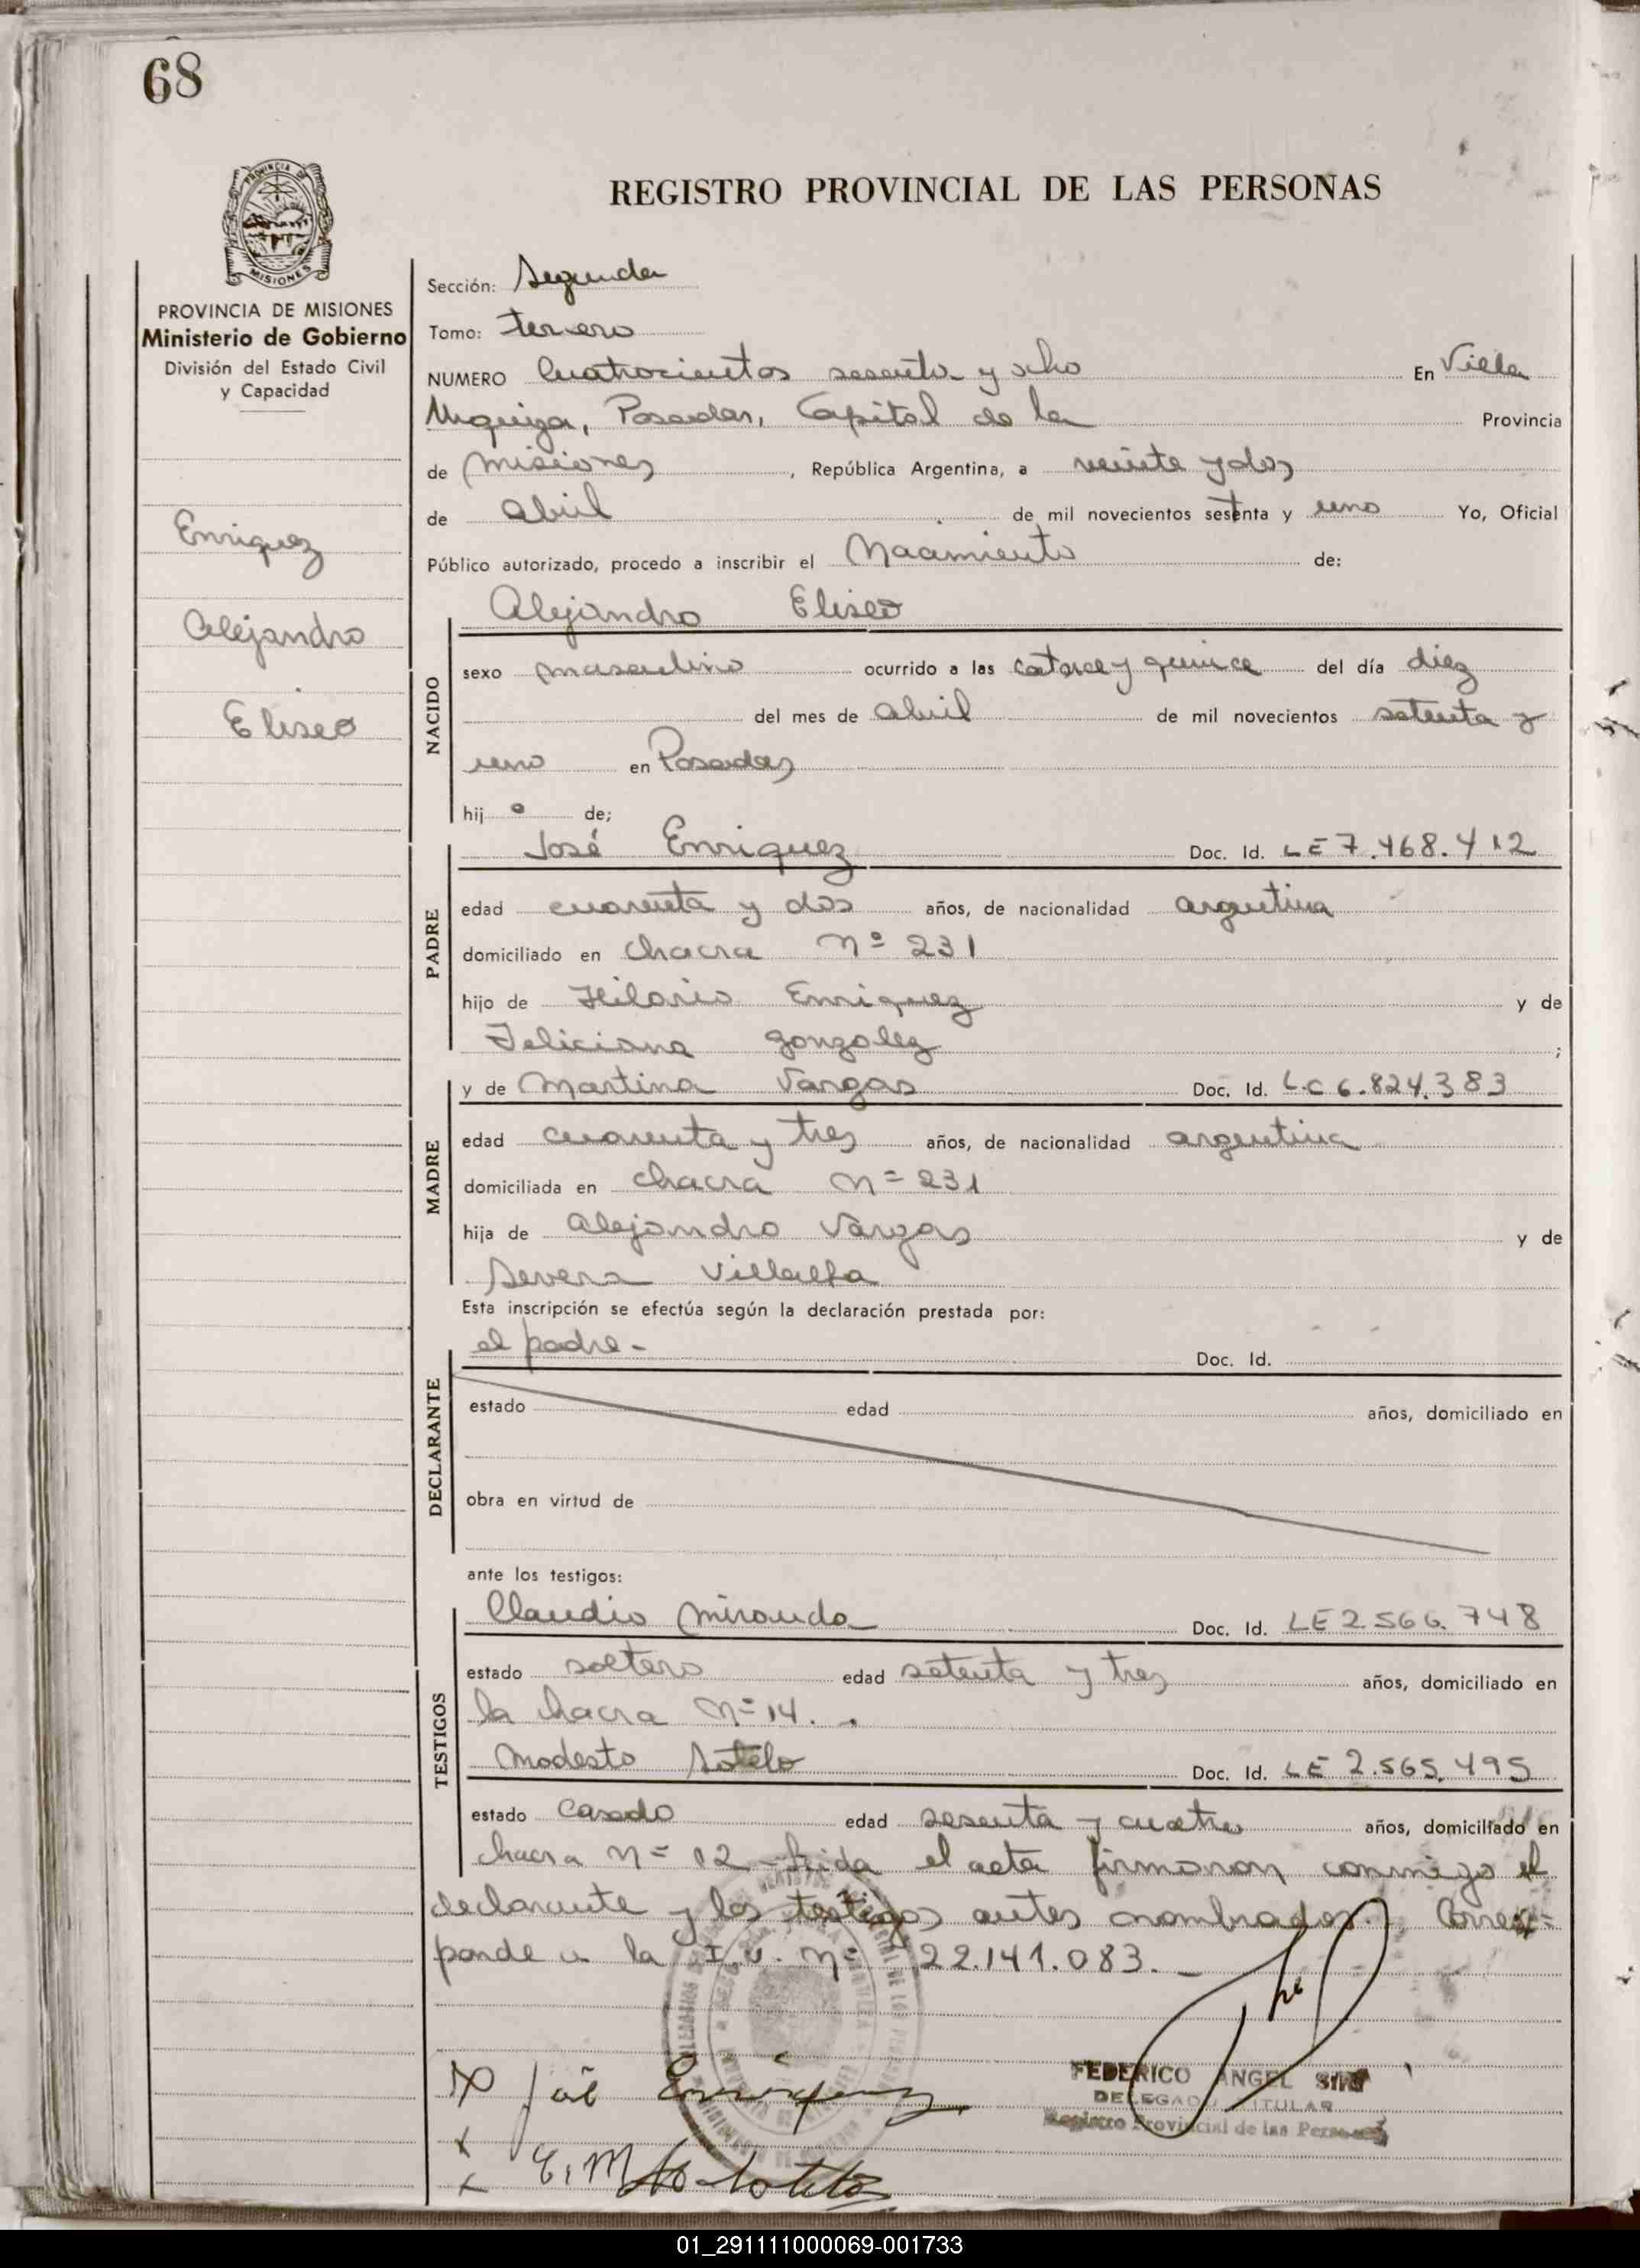 68
PROVINCIA DE
MISIONES
REGISTRO PROVINCIAL DE LAS PERSONAS
PROVINCIA DE MISIONES
Ministerio de Gobierno
División del Estado Civil
y Capacidad
Enriquez
Alejandro
Eliseo
Sección: Segunda
Tomo: tercero
NUMERO Cuatrocientos sesenta y ocho En Villa
Urquiza, Posadas, Capital de la Provincia
de Misiones, República Argentina, a veinte y dos
de abril de mil novecientos setenta y uno Yo, Oficial
Público autorizado, procedo a inscribir el Nacimiento de:
Alejandro Eliseo
NACIDO
sexo masculino ocurrido a las catorce y quince del día diez
del mes de abril de mil novecientos setenta y
uno en Posadas
hijo de;
José Enriquez Doc. Id. LE 7.468.412
PADRE
edad cuarenta y dos años, de nacionalidad argentina
domiciliado en chacra Nº 231
hijo de Hilario Enriquez y de
Feliciana Gonzalez ;
y de Martina Vargas Doc. Id. L.C 6.824.383
MADRE
edad cuarenta y tres años, de nacionalidad argentina
domiciliada en chacra Nº 231
hija de Alejandro Vargas y de
Severa Villalba
Esta inscripción se efectúa según la declaración prestada por:
el padre - Doc. Id.
DECLARANTE
estado edad años, domiciliado en
obra en virtud de
ante los testigos:
Claudio Miranda Doc. Id. LE 2.566.748
TESTIGOS
estado soltero edad setenta y tres años, domiciliado en
la chacra Nº 14.
Modesto Sotelo Doc. Id. LE 2.565.495
estado Casado edad sesenta y cuatro años, domiciliado en
chacra Nº 12 - Leida el acta firmaron conmigo el
declarante y los testigos antes nombrados. Corres=
ponde a la I.U. Nº 22.141.083.-
José Enriquez
FEDERICO ANGEL
DELEGADO TITULAR
Registro Provincial de las Personas
01_291111000069-001733